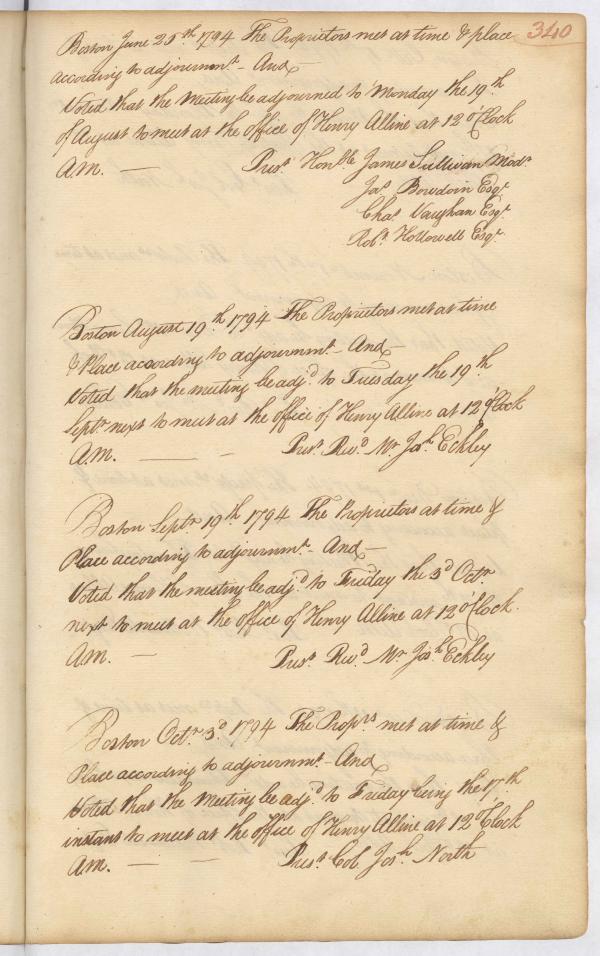 340
Boston June 25.th 1794 The Proprietors met at time & place
according to adjournmt. - And
Voted that the Meeting be adjourned to Monday the 19.th
of August to meet at the office of Henry Alline at 12 o'Clock
A.M. — Prest. Honble. James Sullivan Modr.
Jas. Bowdoin Esqr.
Chas. Vaughan Esqr.
Robt. Hollowell Esqr.
Boston August 19.th 1794 The Proprietors met at time
& Place according to adjournmt. - And
Voted that the meeting be adjd. to Tuesday the 19.th
Septr. next to meet at the office of Henry Alline at 12 o'Clock
A.M. — — Prest. Revd. Mr. Josh. Eckley
Boston Septr. 19.th 1794 The Proprietors at time &
Place according to adjournmt. - And
Voted that the meeting be adjd. to Friday the 3d Octr.
next to meet at the office of Henry Alline at 12 o'Clock.
A.M. — Prest. Revd. Mr. Josh. Eckley
Boston Octr. 3.d 1794 The Proprs. met at time &
Place according to adjournmt. - And
Voted that the Meeting be adjd. to Friday being the 17.th
instant to meet at the office of Henry Alline at 12 o'Clock
A.M. — — Prest. Col. Josh. North